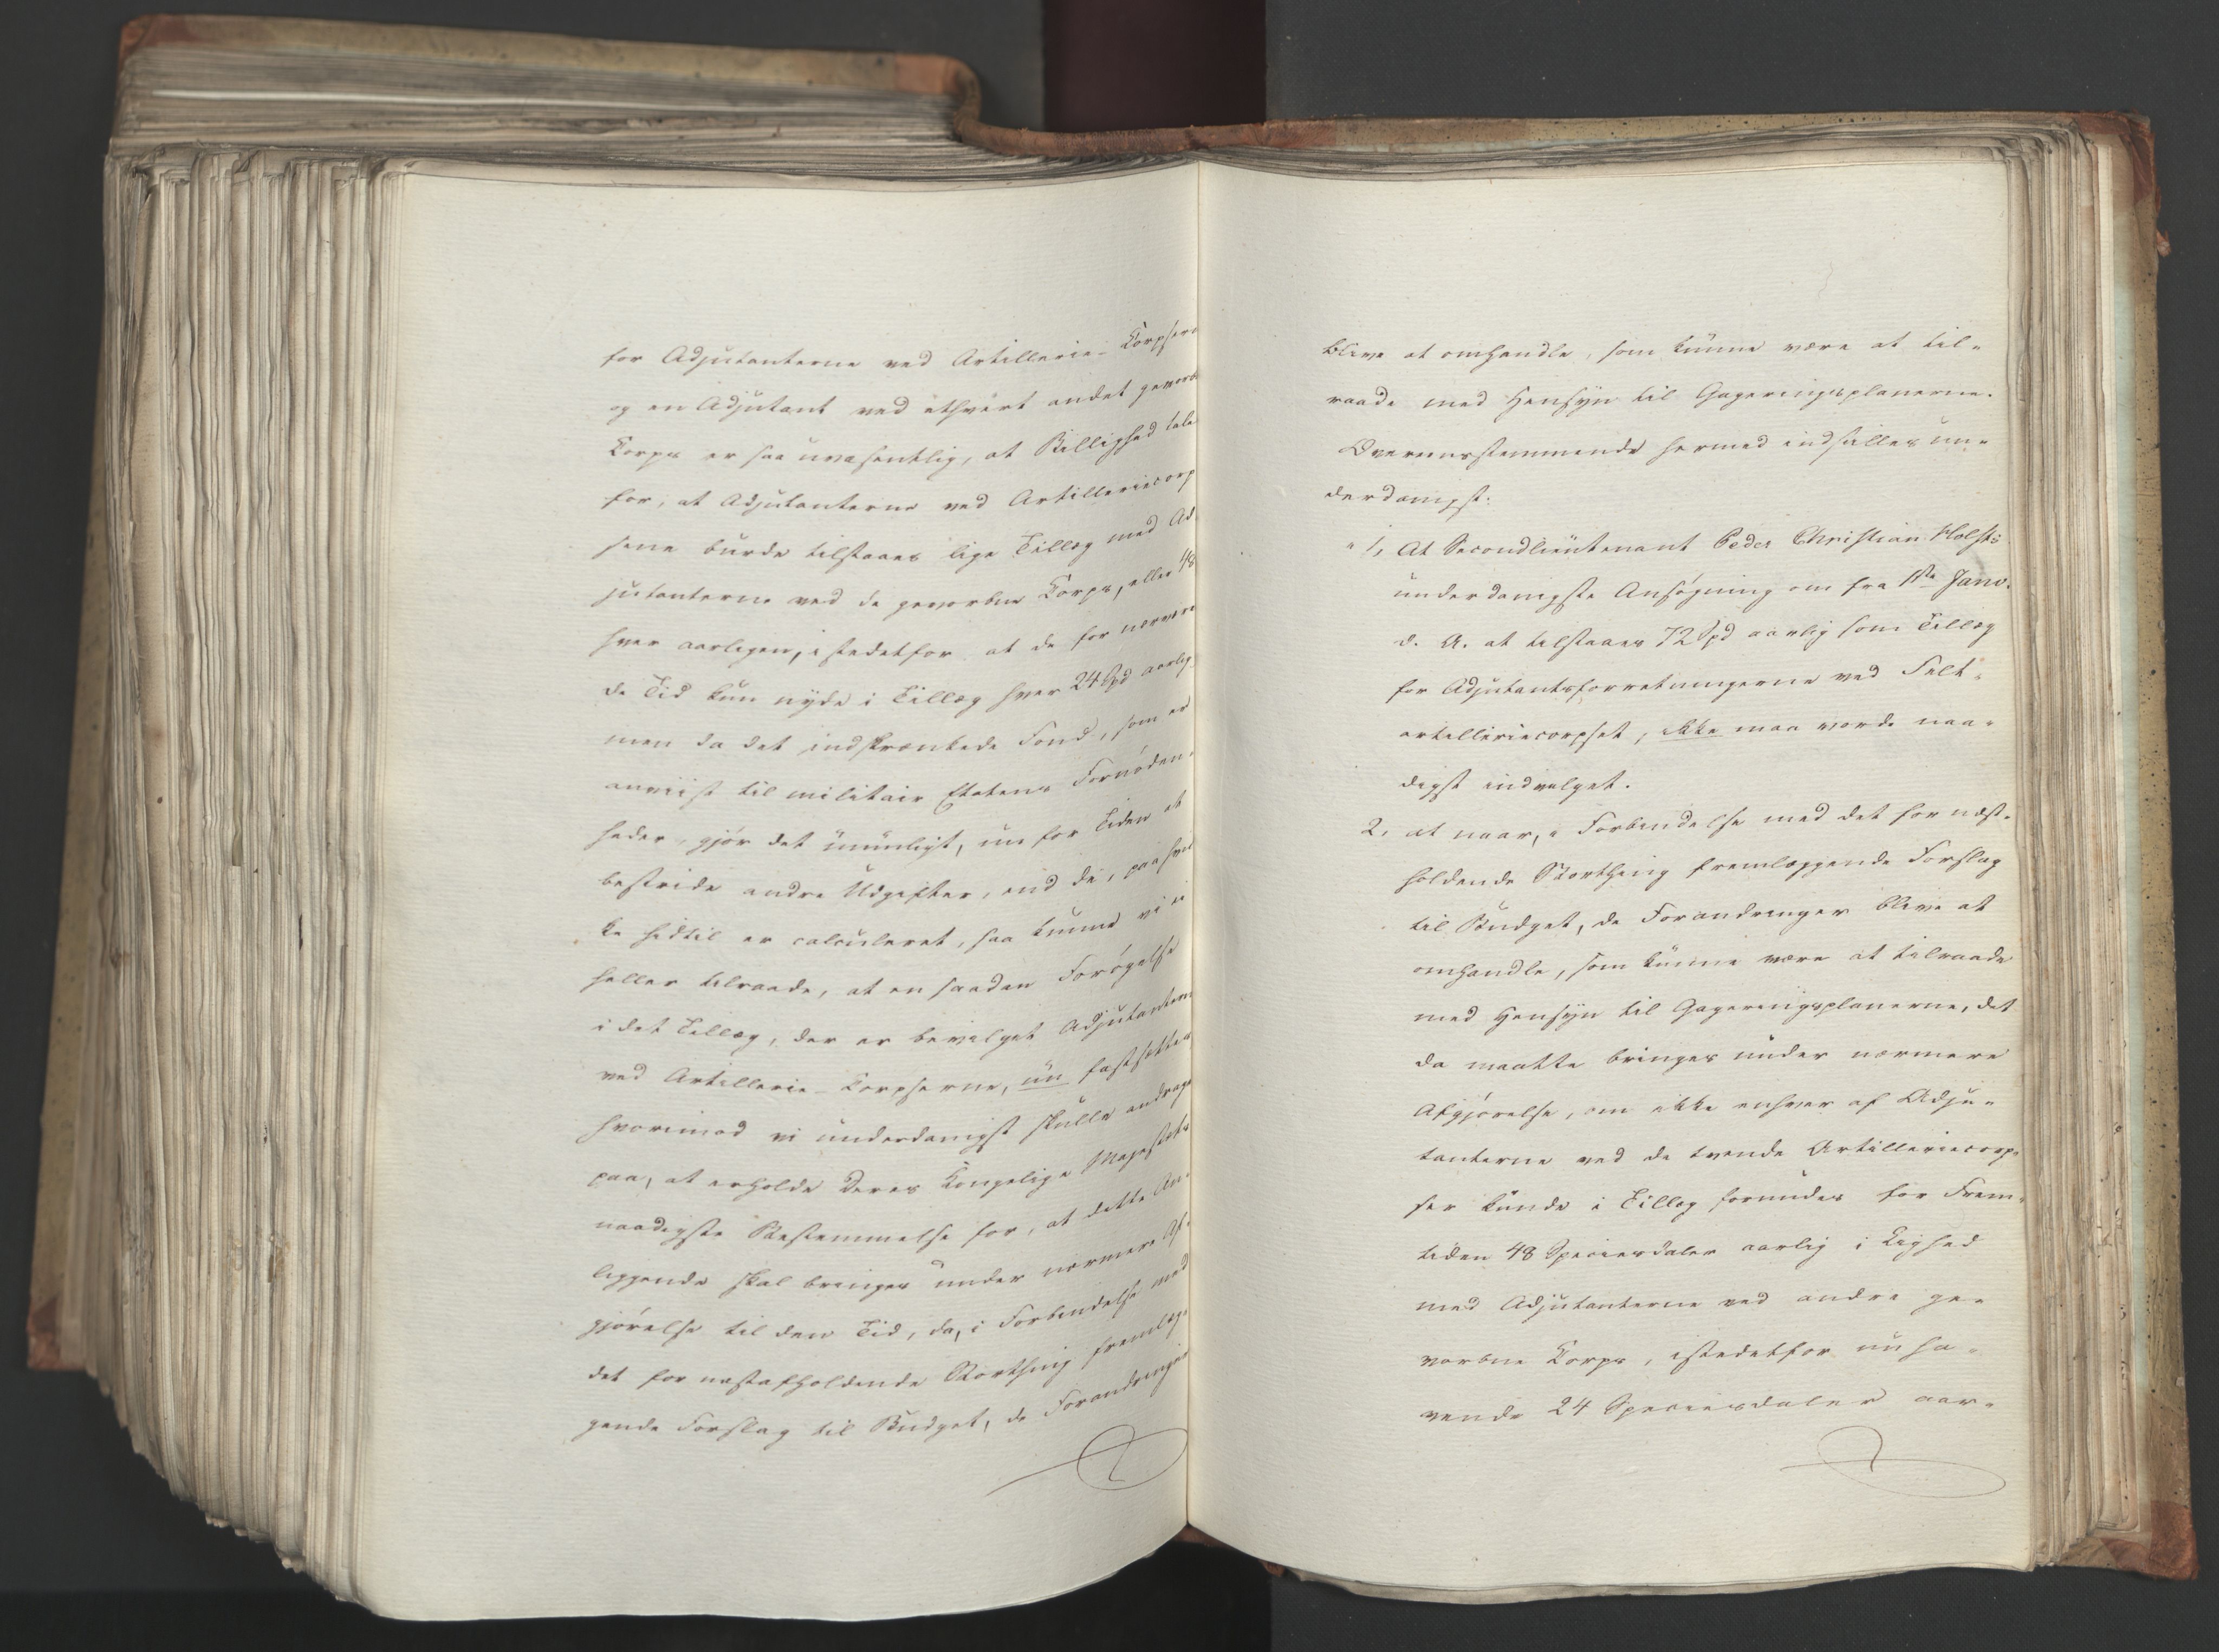 for Adjutanterne ved Artillerie-Korpsern
og en Adjutant ved ethvert andet gevorb
Korps er saa uvæsentlig, at Billighed tale
for, at Adjutanterne ved Artilleriecorp
sene burde tilstaaes lige Tillæg med Ad
jutanterne ved de gevorbne Korps, eller 48
hver aarligen, istedetfor at de for nærvæ
de Tid kun nyde i Tillæg hver 24 Spd aarlig
men da det indskrænkede Fond, som er
anviist til militair Etatens Fornøden-
heder, gjør det umuligt, nu for Tiden at
bestride andre Udgifter, end de, paa hvil
ke hidtil er calculeret, saa kunne vi ei
heller tilraade, at en saadan Forøgelse
i det Tillæg, der er bevilget Adjutantern
ved Artillerie-Korpserne, nu fastsættes
hvorimod vi underdanigst skulle andrage
paa, at erholde Deres Kongelige Majestæts
naadigste Bestemmelse for, at dette An-
liggende skal bringes under nærmere Af-
gjørelse til den Tid, da, i Forbindelse med
det for næstafholdende Storthing fremlæg-
gende Forslag til Budget, de Forandringer
blive at omhandle, som kunne være at til-
raade med Hensyn til Gageringsplanerne.
Overeensstemmende hermed indstilles un-
derdanigst:
" 1, At Secondlieutenant Peder Christian Holsts
underdanigste Ansøgning om fra 1ste Janv.
d. A. at tilstaaes 72 Spd aarlig som Tillæg
for Adjutantsforretningerne ved Felt-
artilleriecorpset, ikke maa vorde naa-
digst indvilget.
2, at naar, i Forbindelse med det for næst-
holdende Storthing fremlæggende Forslag
til Budget, de Forandringer blive at
omhandle, som kunne være at tilraade
med Hensyn til Gageringsplanerne, det
da maatte bringes under nærmere
Afgjørelse, om ikke enhver af Adju-
tanterne ved de tvende Artilleriecorp-
ser kunde i Tillæg forundes for Frem-
tiden 48 Speciesdaler aarlig i Lighed
med Adjutanterne ved andre ge-
vorbne Korps, istedetfor nu ha-
vende 24 Speciesdaler aar-